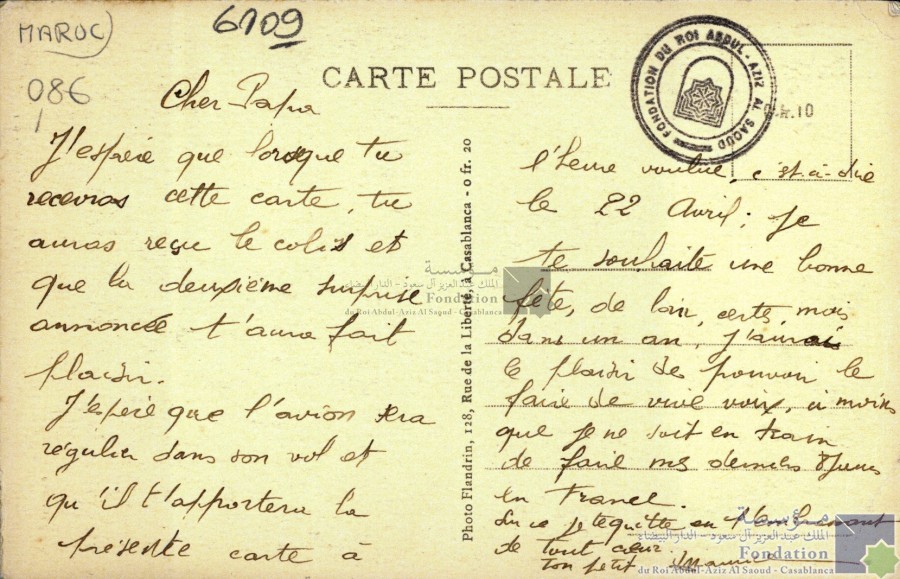 MAROC
6109
086
CARTE POSTALE
FONDATION DU ROI ABDUL-AZIZ AL SAOUD
Cher Papa
J'espère que lorsque tu
recevras cette carte, tu
auras reçu le colis et
que la deuxième surprise
annoncée t'aura fait
plaisir.
J'espère que l'avion sera
régulier dans son vol et
qu'il t'apportera la
présente carte à
Photo Flandrin, 128, Rue de la Liberté, à Casablanca - 0 fr. 20
l'heure voulue, c'est-à-dire
le 22 Avril. Je
te souhaite une bonne
fête, de loin, certes, mais
dans un an, j'aurais
le plaisir de pouvoir le
faire de vive voix, à moins
que je ne soit en train
de faire mes derniers jours
en France
Sur ce je te quitte en t'embrassant
de tout cœur.
ton petit Maurice
مؤسسة
الملك عبد العزيز آل سعود - الدار البيضاء
Fondation
du Roi Abdul-Aziz Al Saoud - Casablanca
مؤسسة
الملك عبد العزيز آل سعود - الدار البيضاء
Fondation
du Roi Abdul-Aziz Al Saoud - Casablanca